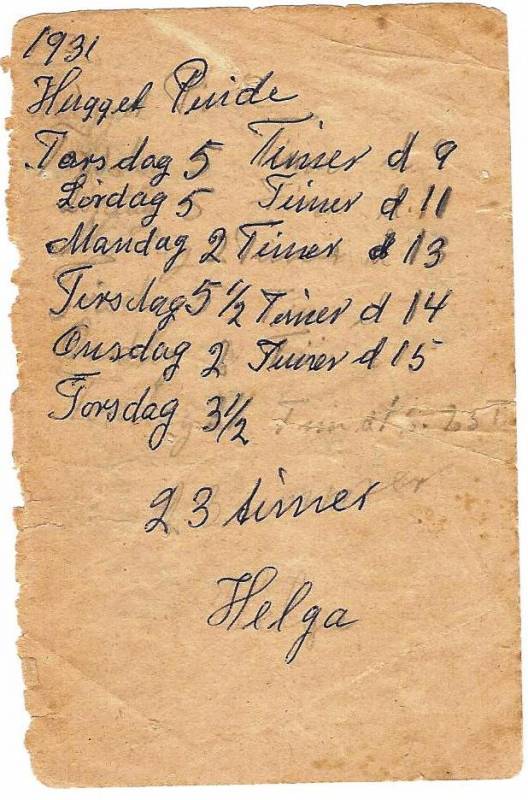 1931
Hugget Pinde
Torsdag 5 Timer d 9
Lördag 5 Timer d. 11
Mandag 2 Timer d 13
Tirsdag 5 1/2 Timer d 14
Onsdag 2 Timer d 15
Torsdag 3 1/2
23 timer
Helga